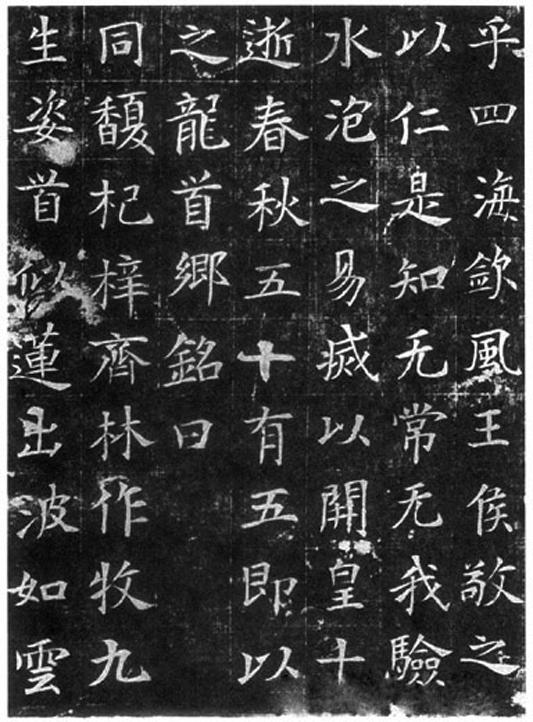 乎四海欽風王侯敬之
以仁是知无常无我驗
水泡之易滅以開皇十
逝春秋五十有五即以
之龍首鄉銘曰
同馥杞梓齊林作牧九
生姿首似蓮出波如雲